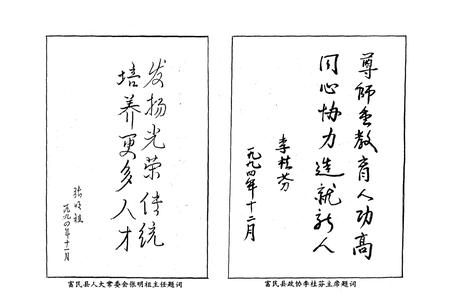 发扬光荣传统
培养更多人才
张明祖
一九九四年十二月
富民县人大常委会张明祖主任题词
尊师重教育人功高
同心协力造就新人
李桂芬
一九九四年十二月
富民县政协李桂芬主席题词